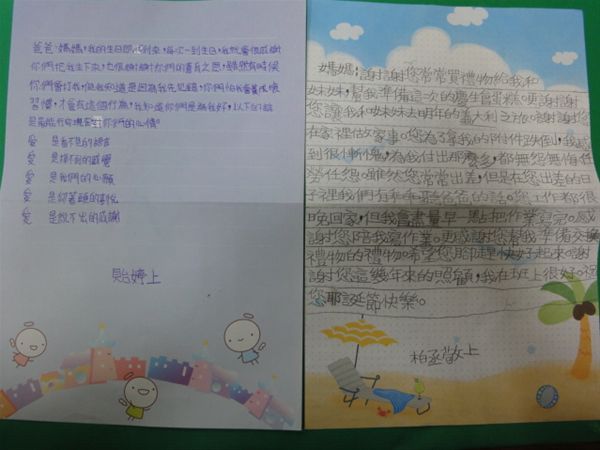 爸爸、媽媽，我的生日即將到來，每次一到生日，我就會很感謝
你們把我生下來，也很感謝你們的養育之恩，雖然有時候
你們會打我，但我知道是因為我先犯錯，你們怕我會養成壞
習慣，才會有這個行為，我知道你們是為我好，以下的話
是最能代表現當對你們的心情。
愛 是看不見的語言
愛 是摸不到的感覺
愛 是我們的心願
愛 是仰著頭的喜悅
愛 是說不出的感謝
貽婷上
媽媽，謝謝您常常買禮物給我和
妹妹，幫我準備這次的慶生會蛋糕，要謝謝
您讓我和妹妹去明年的義大利之旅。謝謝您
在家裡做家事。您為了拿我的附件跌倒，我感
到很慚愧，為我付出那麼多，都無怨無悔任
勞任怨。雖然您常常出差，但是在您出差的日
子裡我們有乖乖聽爸爸的話。您工作都很
晚回家，但我會盡量早一點把作業寫完。感
謝您陪我寫作業。更感謝您幫我準備交換
禮物的禮物。希望您腳趕快好起來。謝
謝您這幾年來的照顧，我在班上很好。祝
您耶誕節快樂。
柏丞敬上